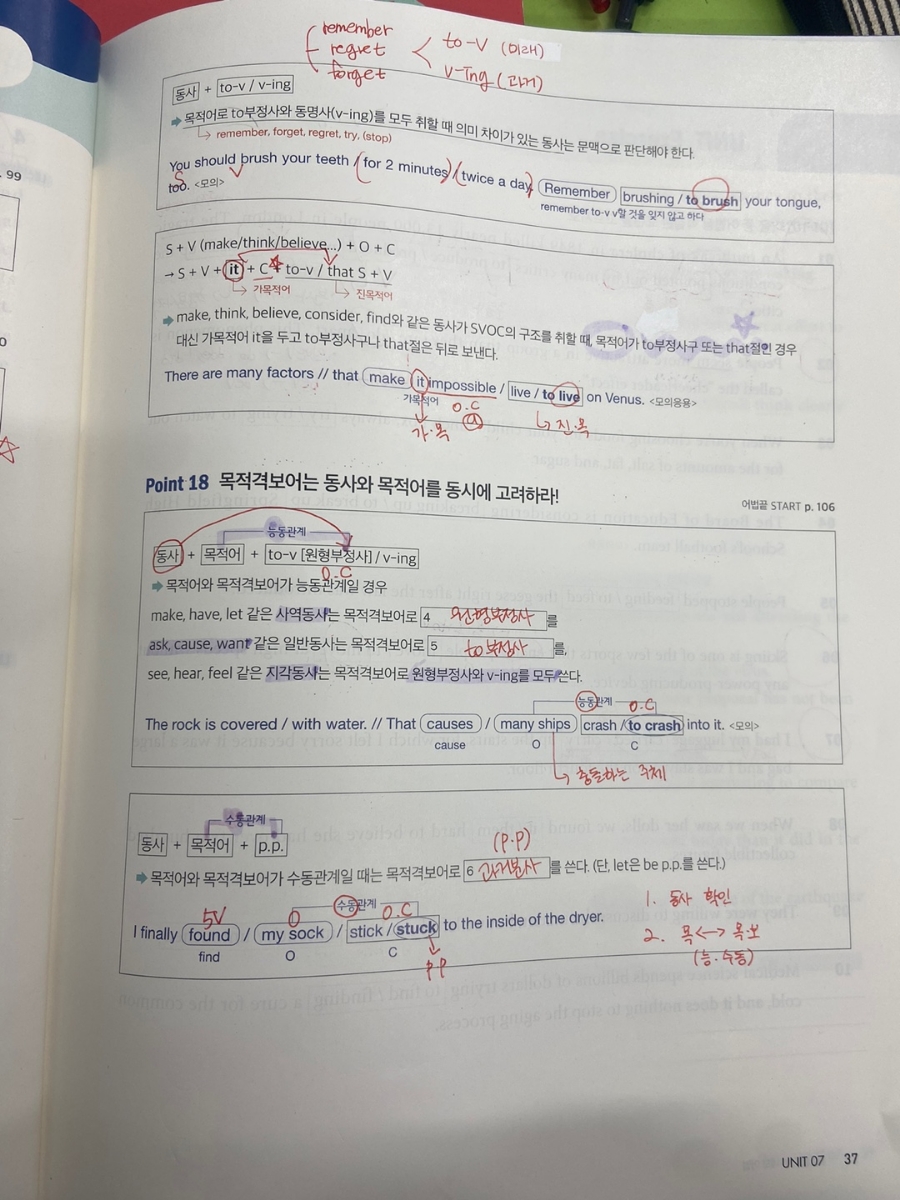 remember
regret
forget
to-V (미래)
V-Ing (과거)
동사 + to-v / v-ing
➡ 목적어로 to부정사와 동명사(v-ing)를 모두 취할 때 의미 차이가 있는 동사는 문맥으로 판단해야 한다.
remember, forget, regret, try, (stop)
You should brush your teeth / (for 2 minutes) / (twice a day) Remember brushing / to brush your tongue,
S V
too. <모의>
remember to-v v할 것을 잊지 않고 하다
S + V (make/think/believe...) + O + C
→ S + V + it + C + to-v / that S + V
가목적어 진목적어
➡ make, think, believe, consider, find와 같은 동사가 SVOC의 구조를 취할 때, 목적어가 to부정사구 또는 that절인 경우
대신 가목적어 it을 두고 to부정사구나 that절은 뒤로 보낸다.
There are many factors // that make it impossible / live / to live on Venus. <모의응용>
가목적어 O.C
가·목 ⓐ 진·목
99
Point 18 목적격보어는 동사와 목적어를 동시에 고려하라!
어법끝 START p. 106
능동관계
동사 + 목적어 + to-v [원형부정사] / v-ing
O.C
➡ 목적어와 목적격보어가 능동관계일 경우
make, have, let 같은 사역동사는 목적격보어로 4 원형부정사 를
ask, cause, want 같은 일반동사는 목적격보어로 5 to부정사 를,
see, hear, feel 같은 지각동사는 목적격보어로 원형부정사와 v-ing를 모두 쓴다.
능동관계 O.C
The rock is covered / with water. // That causes / many ships crash / to crash into it. <모의>
cause O C
충돌하는 주체
수동관계
동사 + 목적어 + p.p.
(p.p)
➡ 목적어와 목적격보어가 수동관계일 때는 목적격보어로 6 과거분사 를 쓴다. (단, let은 be p.p.를 쓴다.)
수동관계
5V O O.C
I finally found / my sock / stick / stuck to the inside of the dryer.
find O C
p.p
1. 동사 확인
2. 목 <-> 목·보
(능·수동)
UNIT 07 37